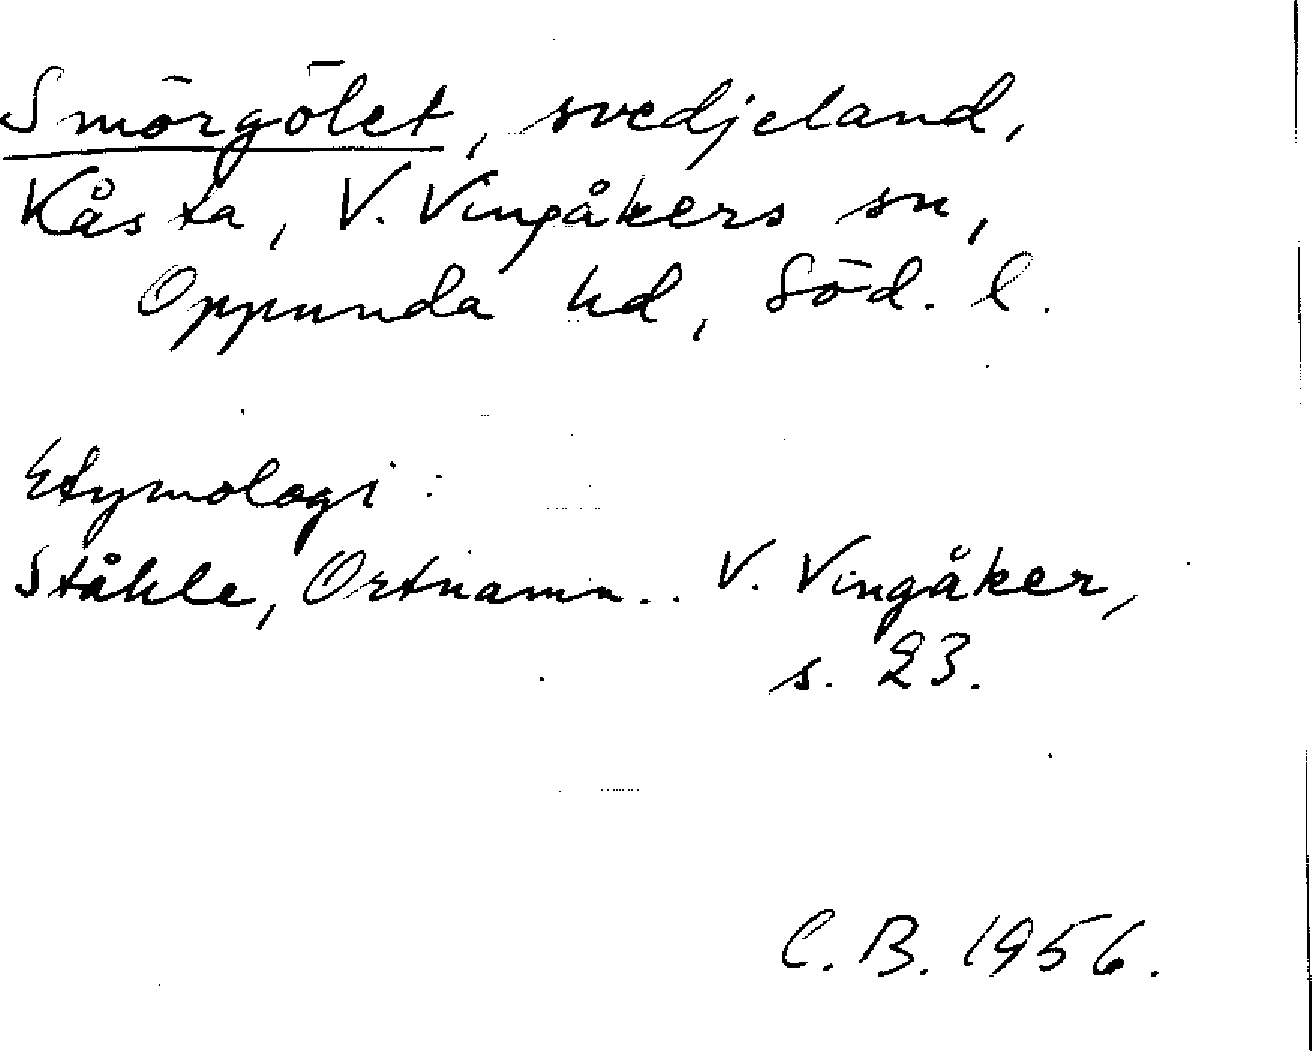 Smörgölet, svedjeland,
Kåsta, V. Vingåkers sn,
Oppunda hd, Söd. l.
Etymologi:
Ståhle, Ortnamn.. V. Vingåker,
s. 23.
C. B. 1956.